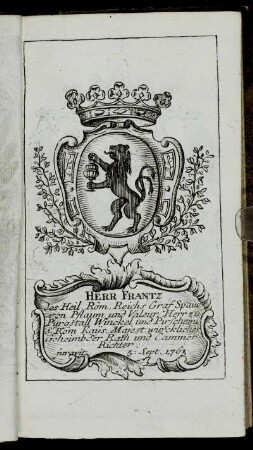 HERR FRANTZ
des Heil. Röm. Reichs Graf Spaur
von Pflaum und Valour, Herr zu
Purgstall Winckel und
Röm Kais. Majest. würcklicher
Geheimbder Rath und Cammer
Richter.
juravit 5. Sept. 1763